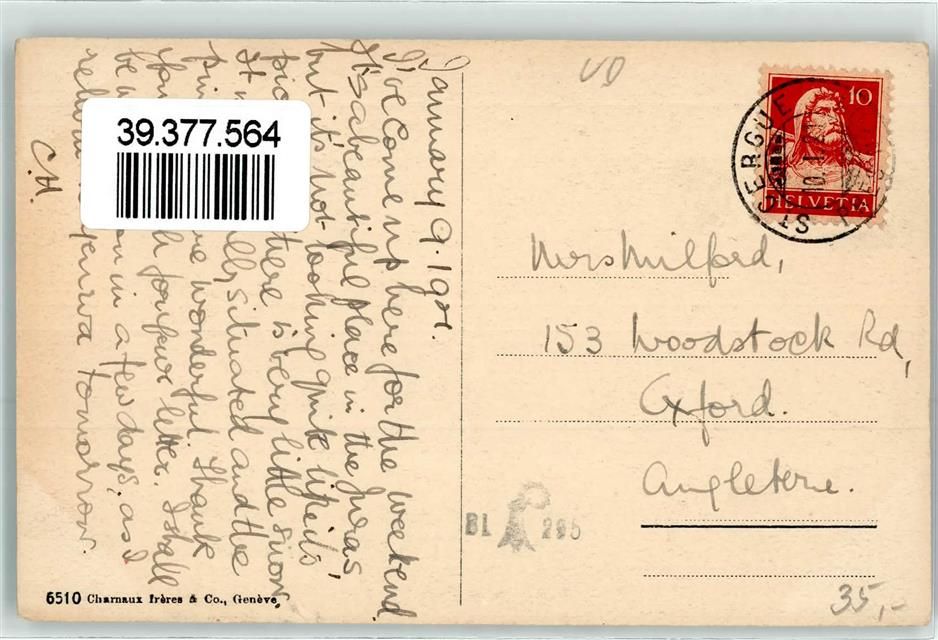 VD
10
HELVETIA
ST CERGUE
10. I. 21
January 9. 1921.
I've come up here for the weekend.
It's a beautiful place in the Juras,
but it's not looking quite
there is very little snow.
It situated and the
wonderful. Thank
for your letter. I shall
in a few days, as I
tomorrow.
C.H.
39.377.564
Mrs Milford,
153 Woodstock Rd,
Oxford.
Angleterre.
BL 295
6510 Charnaux frères & Co., Genève.
35,-